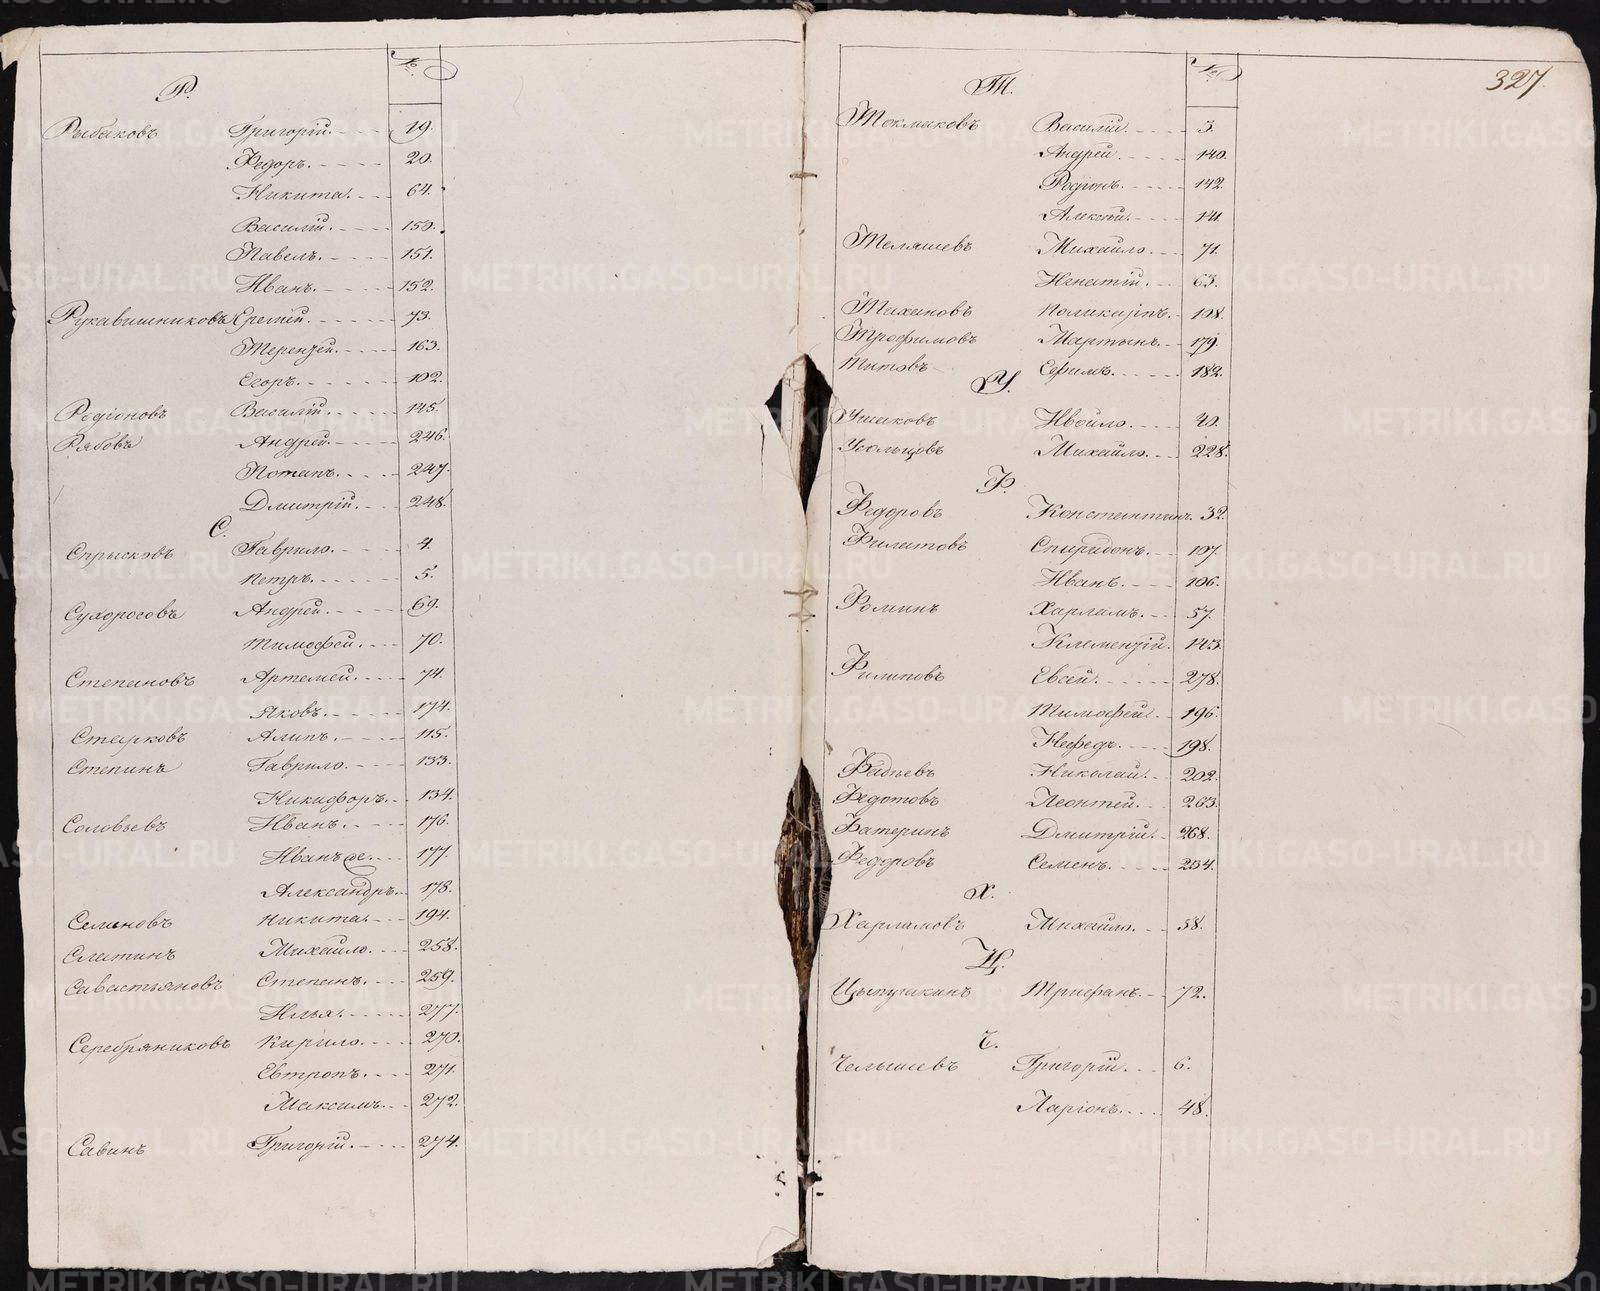 №
Р.
Рыбаковъ Григорій. 19.
Федоръ. 20.
Никита. 64.
Василій. 150.
Павелъ. 151.
Иванъ. 152.
Рукавишниковъ Еремѣй. 73.
Терентей. 163.
Егоръ. 102.
Родіоновъ Василій. 145.
Рябовъ Андрей. 246.
Потапъ. 247.
Дмитрій. 248.
С.
Спрысковъ Гаврило. 4.
Петръ. 5.
Сухоросовъ Андрей. 69.
Тимофей. 70.
Степановъ Артемей. 74.
Яковъ. 174.
Старковъ Алипъ. 115.
Степинъ Гаврило. 133.
Никифоръ. 134.
Соловьевъ Иванъ. 176.
Иванъ же. 177.
Александръ. 178.
Семеновъ Никита. 194.
Слатинъ Михайло. 258.
Савастьяновъ Степанъ. 259.
Илья. 277.
Серебряниковъ Кирило. 270.
Евтропъ. 271.
Максимъ. 272.
Савинъ Григорій. 274.
327.
№
Т.
Токмаковъ Василій. 3.
Андрей. 140.
Родіонъ. 142.
Алексѣй. 141.
Теляшевъ Михайло. 71.
Игнатій. 63.
Тихановъ Поликарпъ. 108.
Трофимовъ Мартынъ. 179.
Титовъ Ефимъ. 182.
У.
Ушаковъ Ивойло. 40.
Усольцовъ Михайло. 228.
Ф.
Федоровъ Константинъ. 32.
Филатовъ Спиридонъ. 107.
Иванъ. 106.
Фоминъ Харламъ. 57.
Климентій. 143.
Филиповъ Евсей. 278.
Тимофей. 196.
Нефедъ. 198.
Фадѣевъ Николай. 202.
Федотовъ Леонтей. 263.
Фатеринъ Дмитрій. 268.
Федоровъ Семенъ. 254.
Х.
Харламовъ Михайло. 58.
Ц.
Цыпушкинъ Трифанъ. 72.
Ч.
Челышевъ Григорій. 6.
Ларіонъ. 48.
METRIKI.GASO-URAL.RU